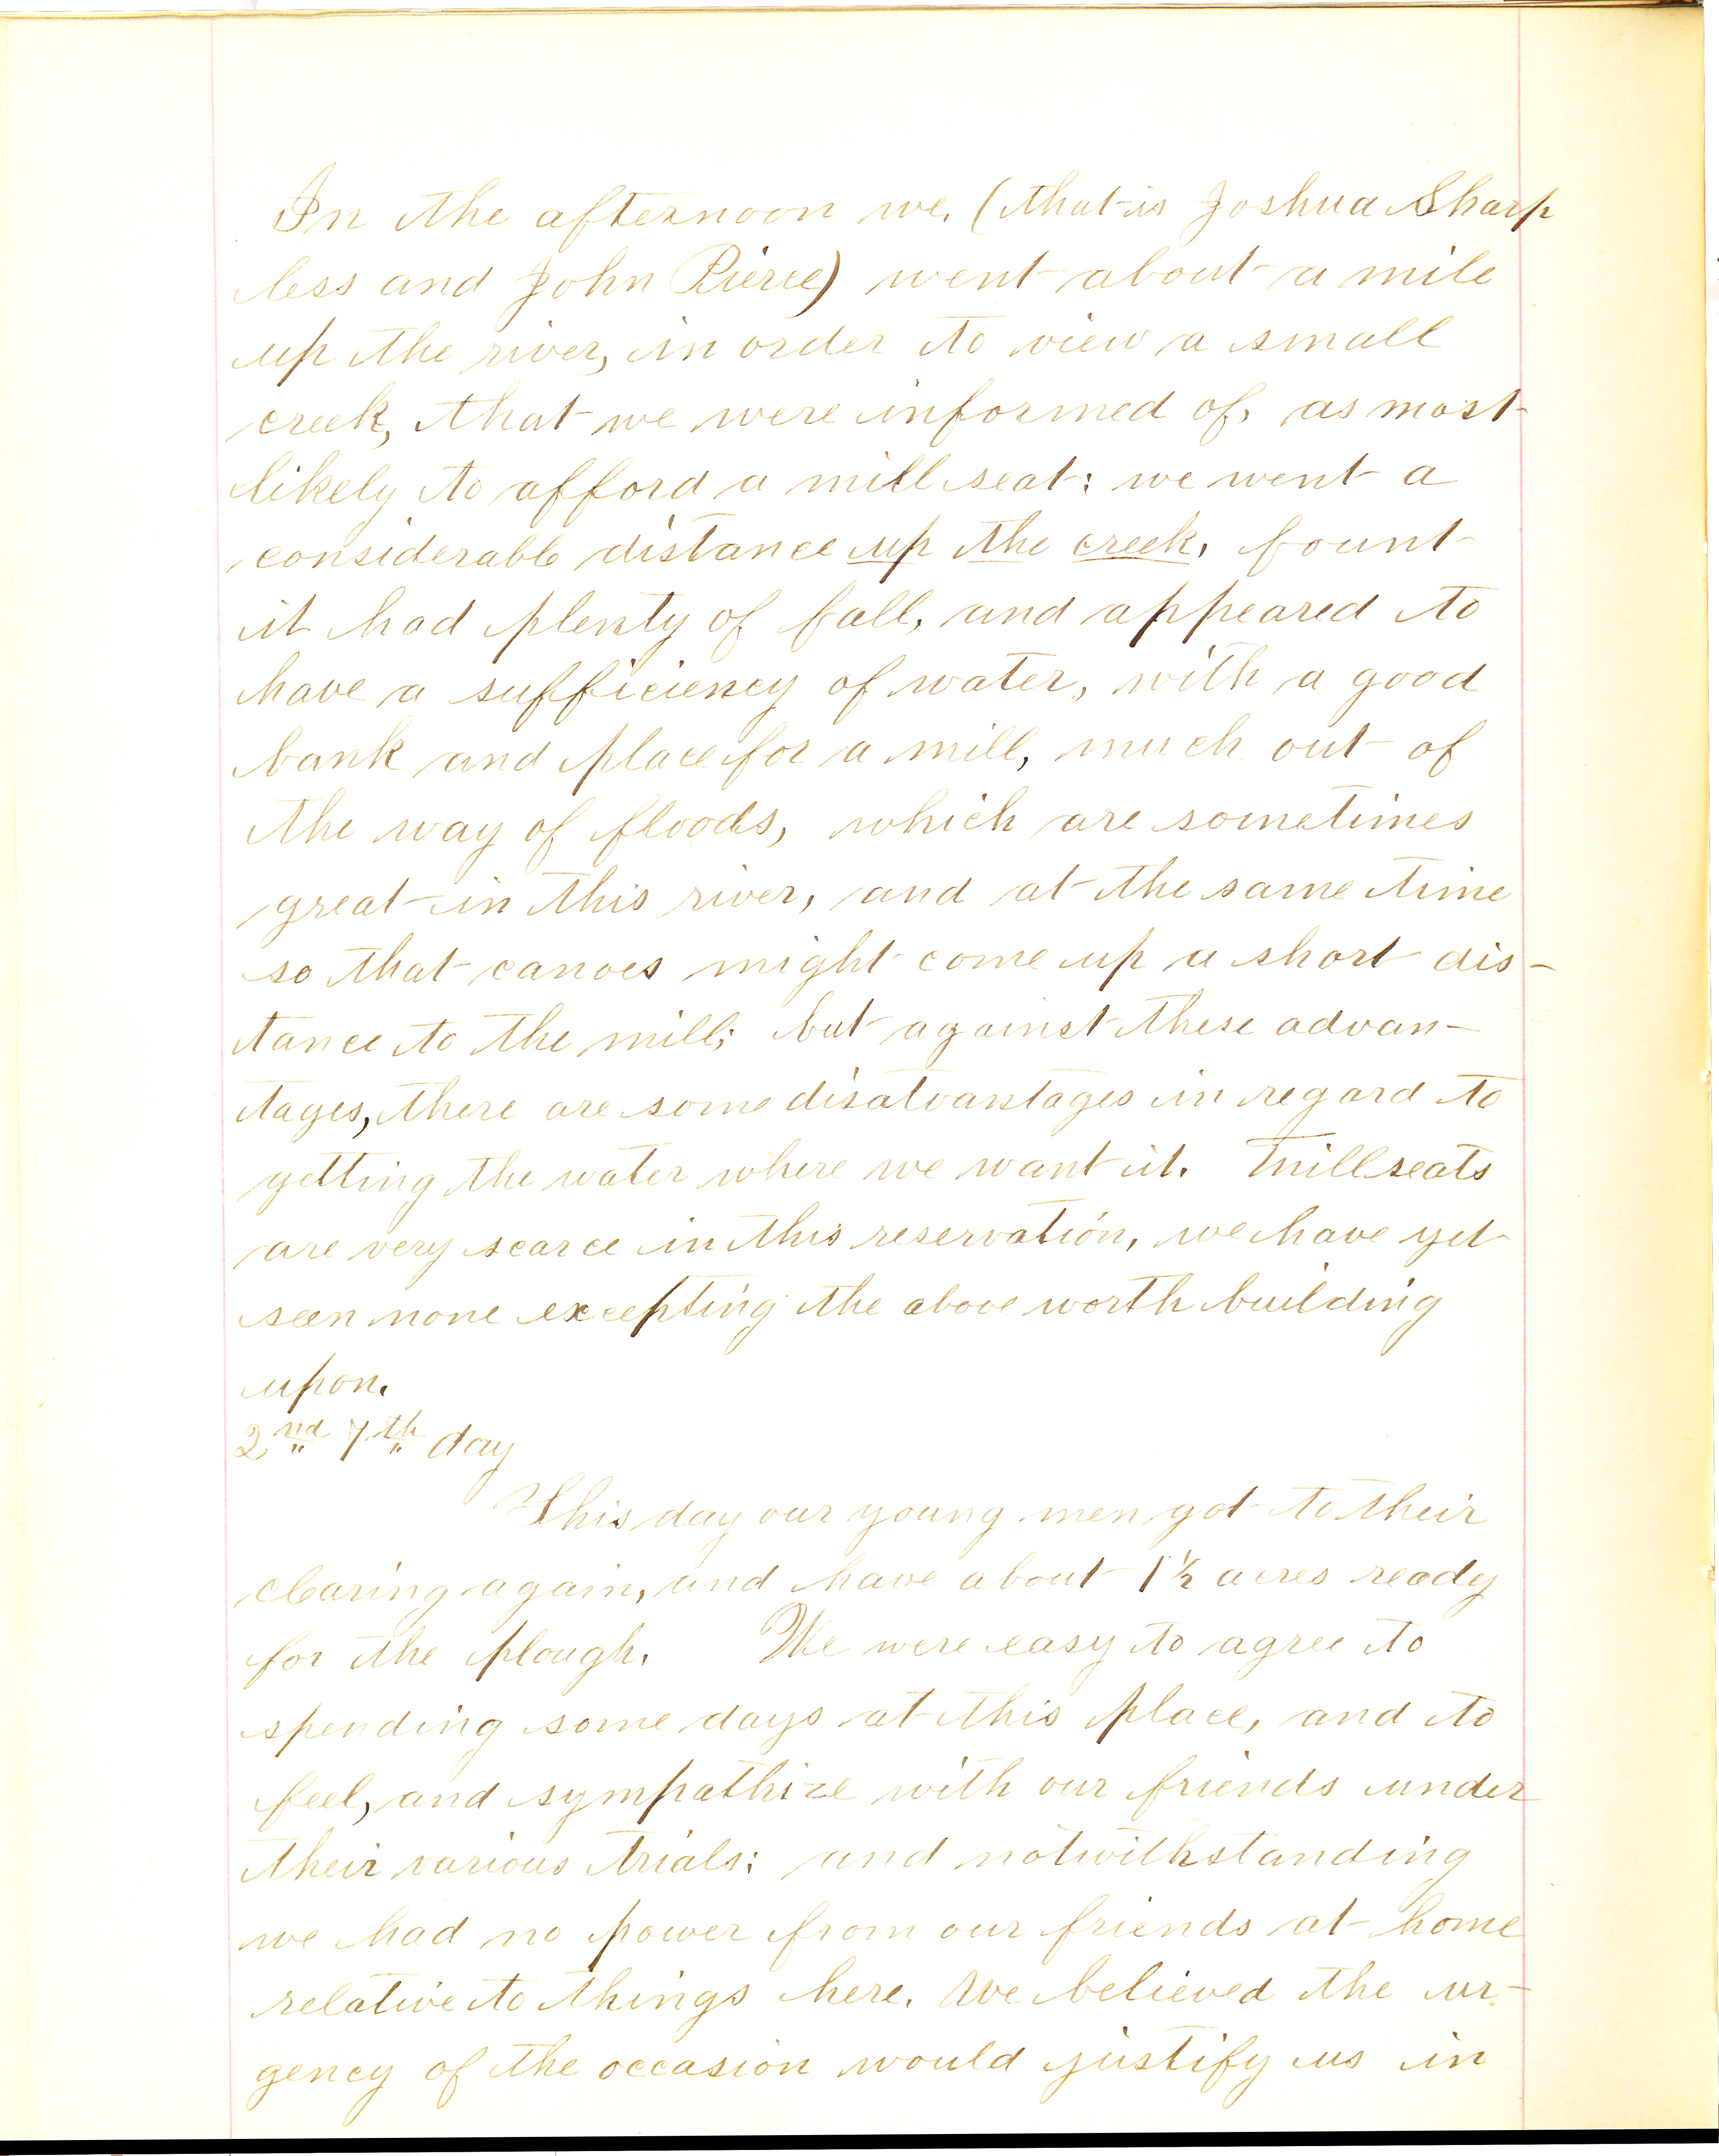 In the afternoon we, (that is Joshua Sharp
less and John Pierce) went about a mile
up the river, in order to view a small
creek, that we were informed of, as most
likely to afford a mill seat: we went a
considerable distance up the creek, fount
it had plenty of fall, and appeared to
have a sufficiency of water, with a good
bank and place for a mill, much out of
the way of floods, which are sometimes
great in this river, and at the same time
so that canoes might come up a short dis-
tance to the mill; but against these advan-
tages, there are some disatvantages in regard to
getting the water where we want it. Millseats
are very scarce in this reservation, we have yet
seen none excepting the above worth building
upon.
2nd 7th day
This day our young men got to their
clearing again, and have about 1 1/2 acres ready
for the plough. We were easy to agree to
spending some days at this place, and to
feel, and sympathize with our friends under
their various trials: and notwithstanding
we had no power from our friends at home
relative to things here. We believed the ur-
gency of the occasion would justify us in